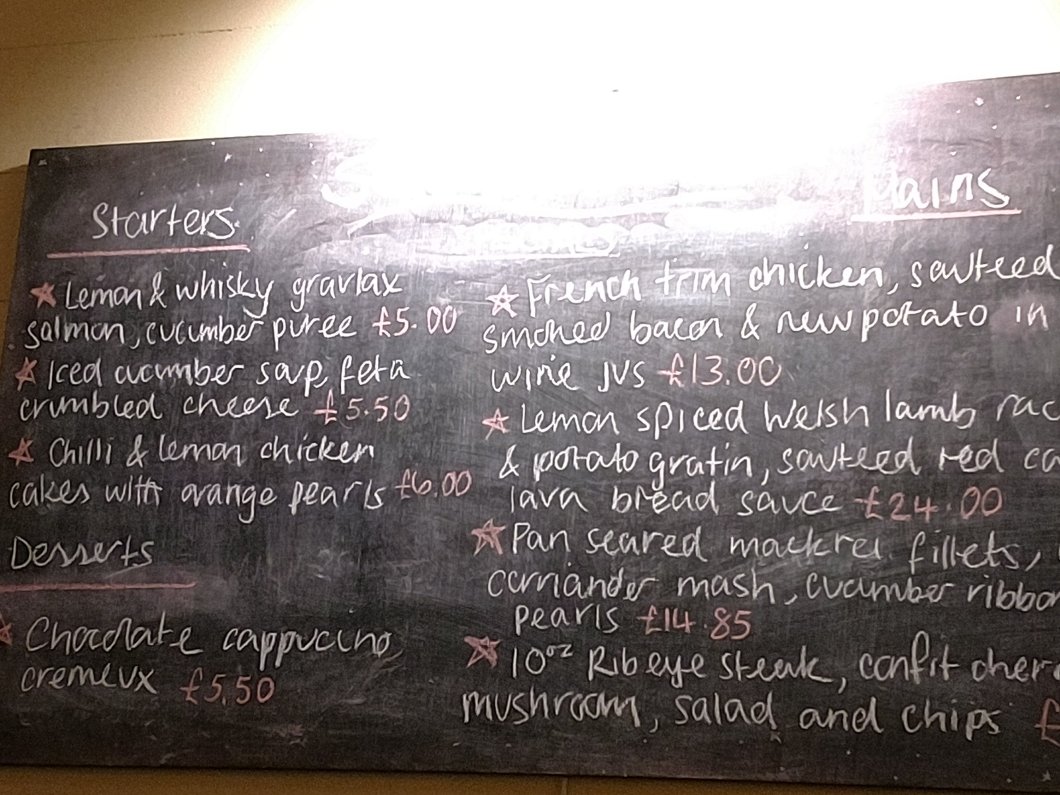 Starters
Lemon & whisky gravlax
salmon, cucumber puree £5.00
Iced cucumber soup, feta
crumbled cheese £5.50
Chilli & lemon chicken
cakes with orange pearls £6.00
Desserts
Chocolate cappucino
cremeux £5.50
Mains
French trim chicken, sauteed
smoked bacon & new potato in
wine jus £13.00
Lemon spiced Welsh lamb rac
& potato gratin, sauteed red ca
lava bread sauce £24.00
Pan seared mackrel fillets,
corriander mash, cucumber ribbo
pearls £14.85
10oz Rib eye steak, confit cher
mushroom, salad and chips £